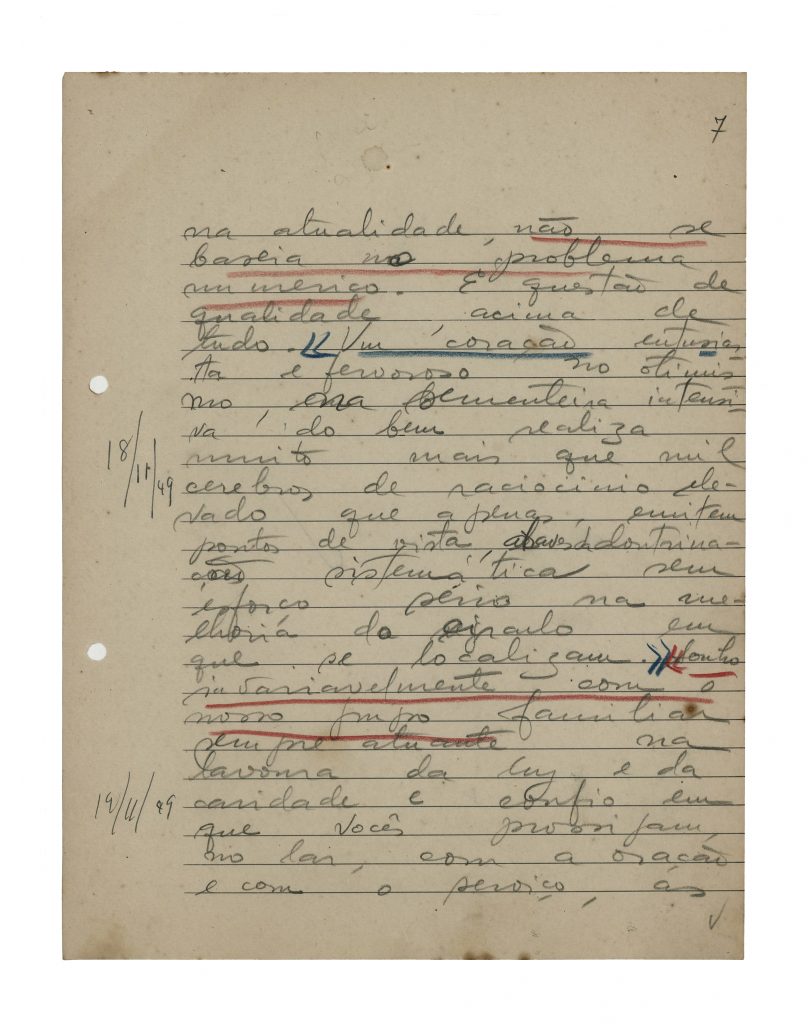 7
na atualidade, não se
baseia no problema
numerico. É questão de
qualidade acima de
tudo. « Um coração entusias
ta e fervoroso no otimis
mo, e na sementeira intensi-
va do bem realiza
18/11/49
muito mais que mil
cerebros de raciocinio ele-
vado que apenas emitem
pontos de vista, através da doutrina-
ção sistemática sem
esforço sério na me-
lhoria do circulo em
que se localizam. » « Conto
invariavelmente com o
nosso grupo familiar
sempre atuante na
lavoura da luz e da
19/11/49
caridade e confio em
que vocês prossigam,
no lar, com a oração
e com o serviço, às